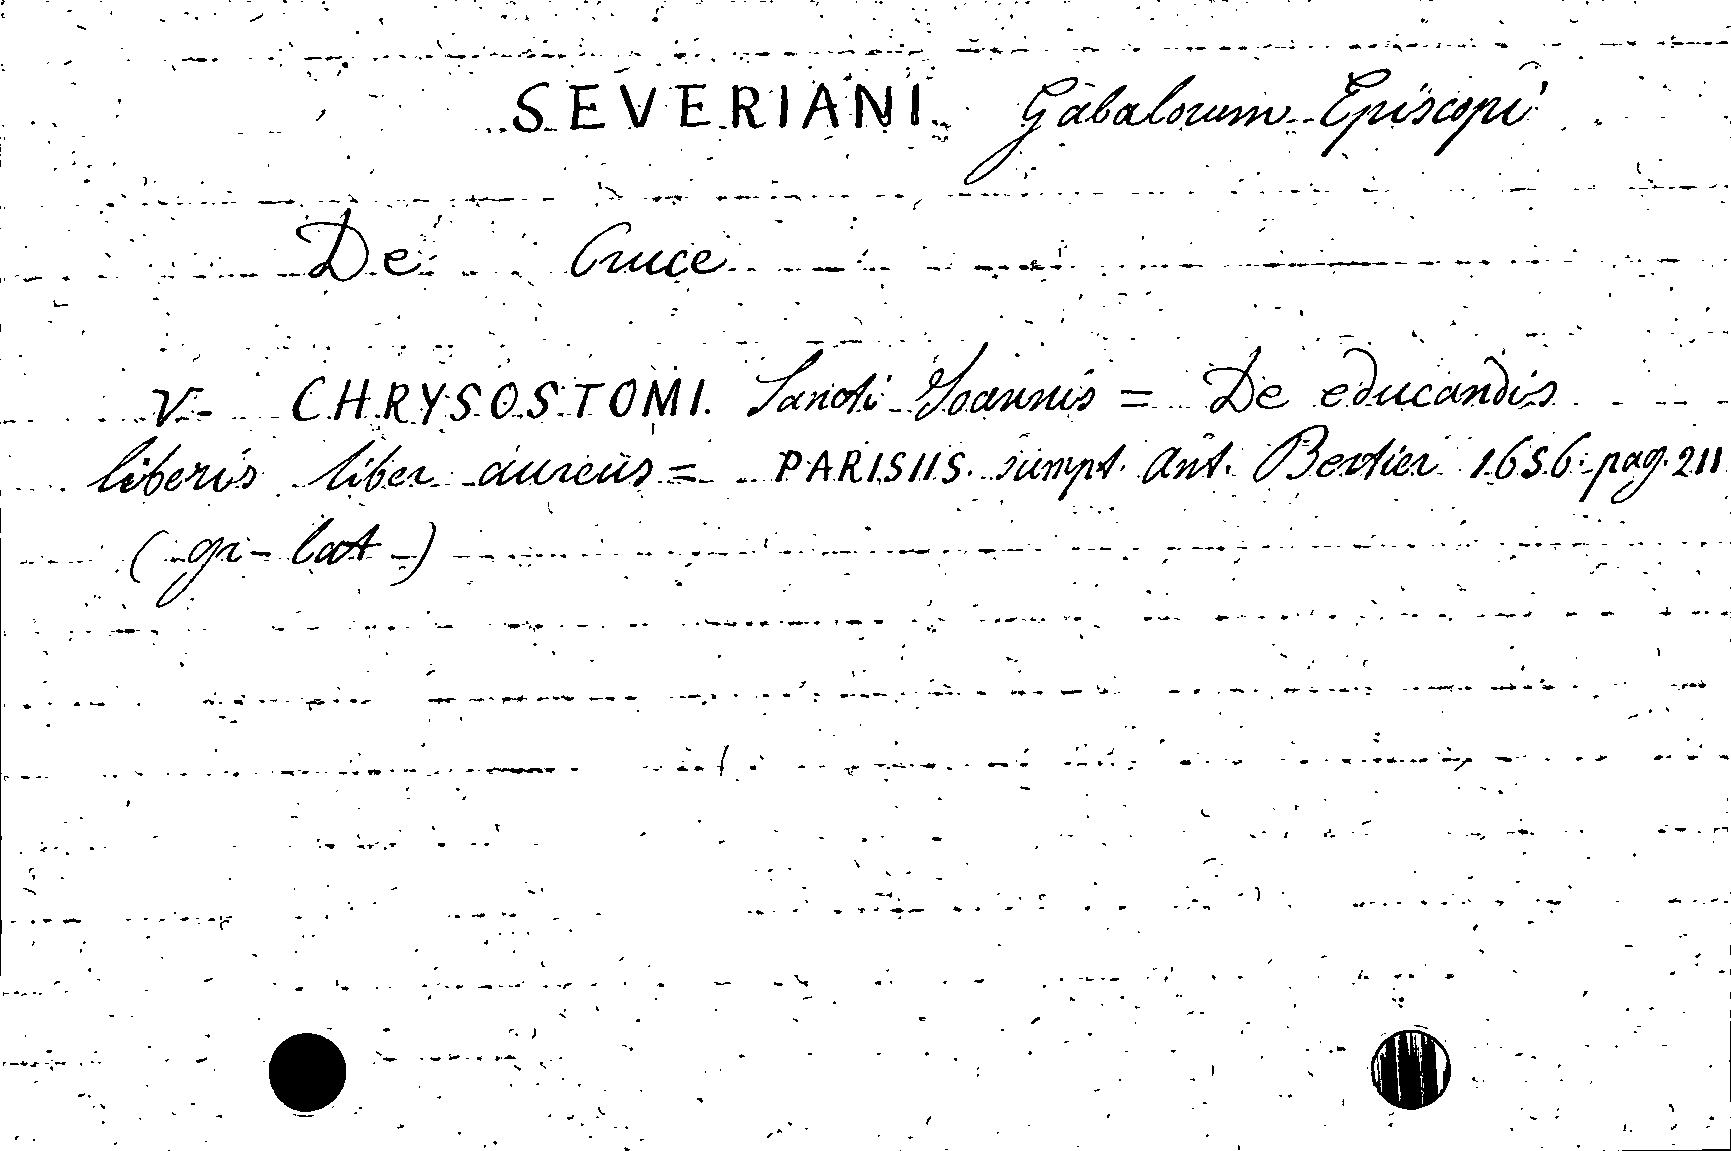 SEVERIANI Gabalorum Episcopi
De Cruce
V- CHRYSOSTOMI. Sancti Joannis = De educandis
liberis liber aureus = PARISIIS. sumpt. Ant. Bertier 1656. pag. 211
(gr - lat -)